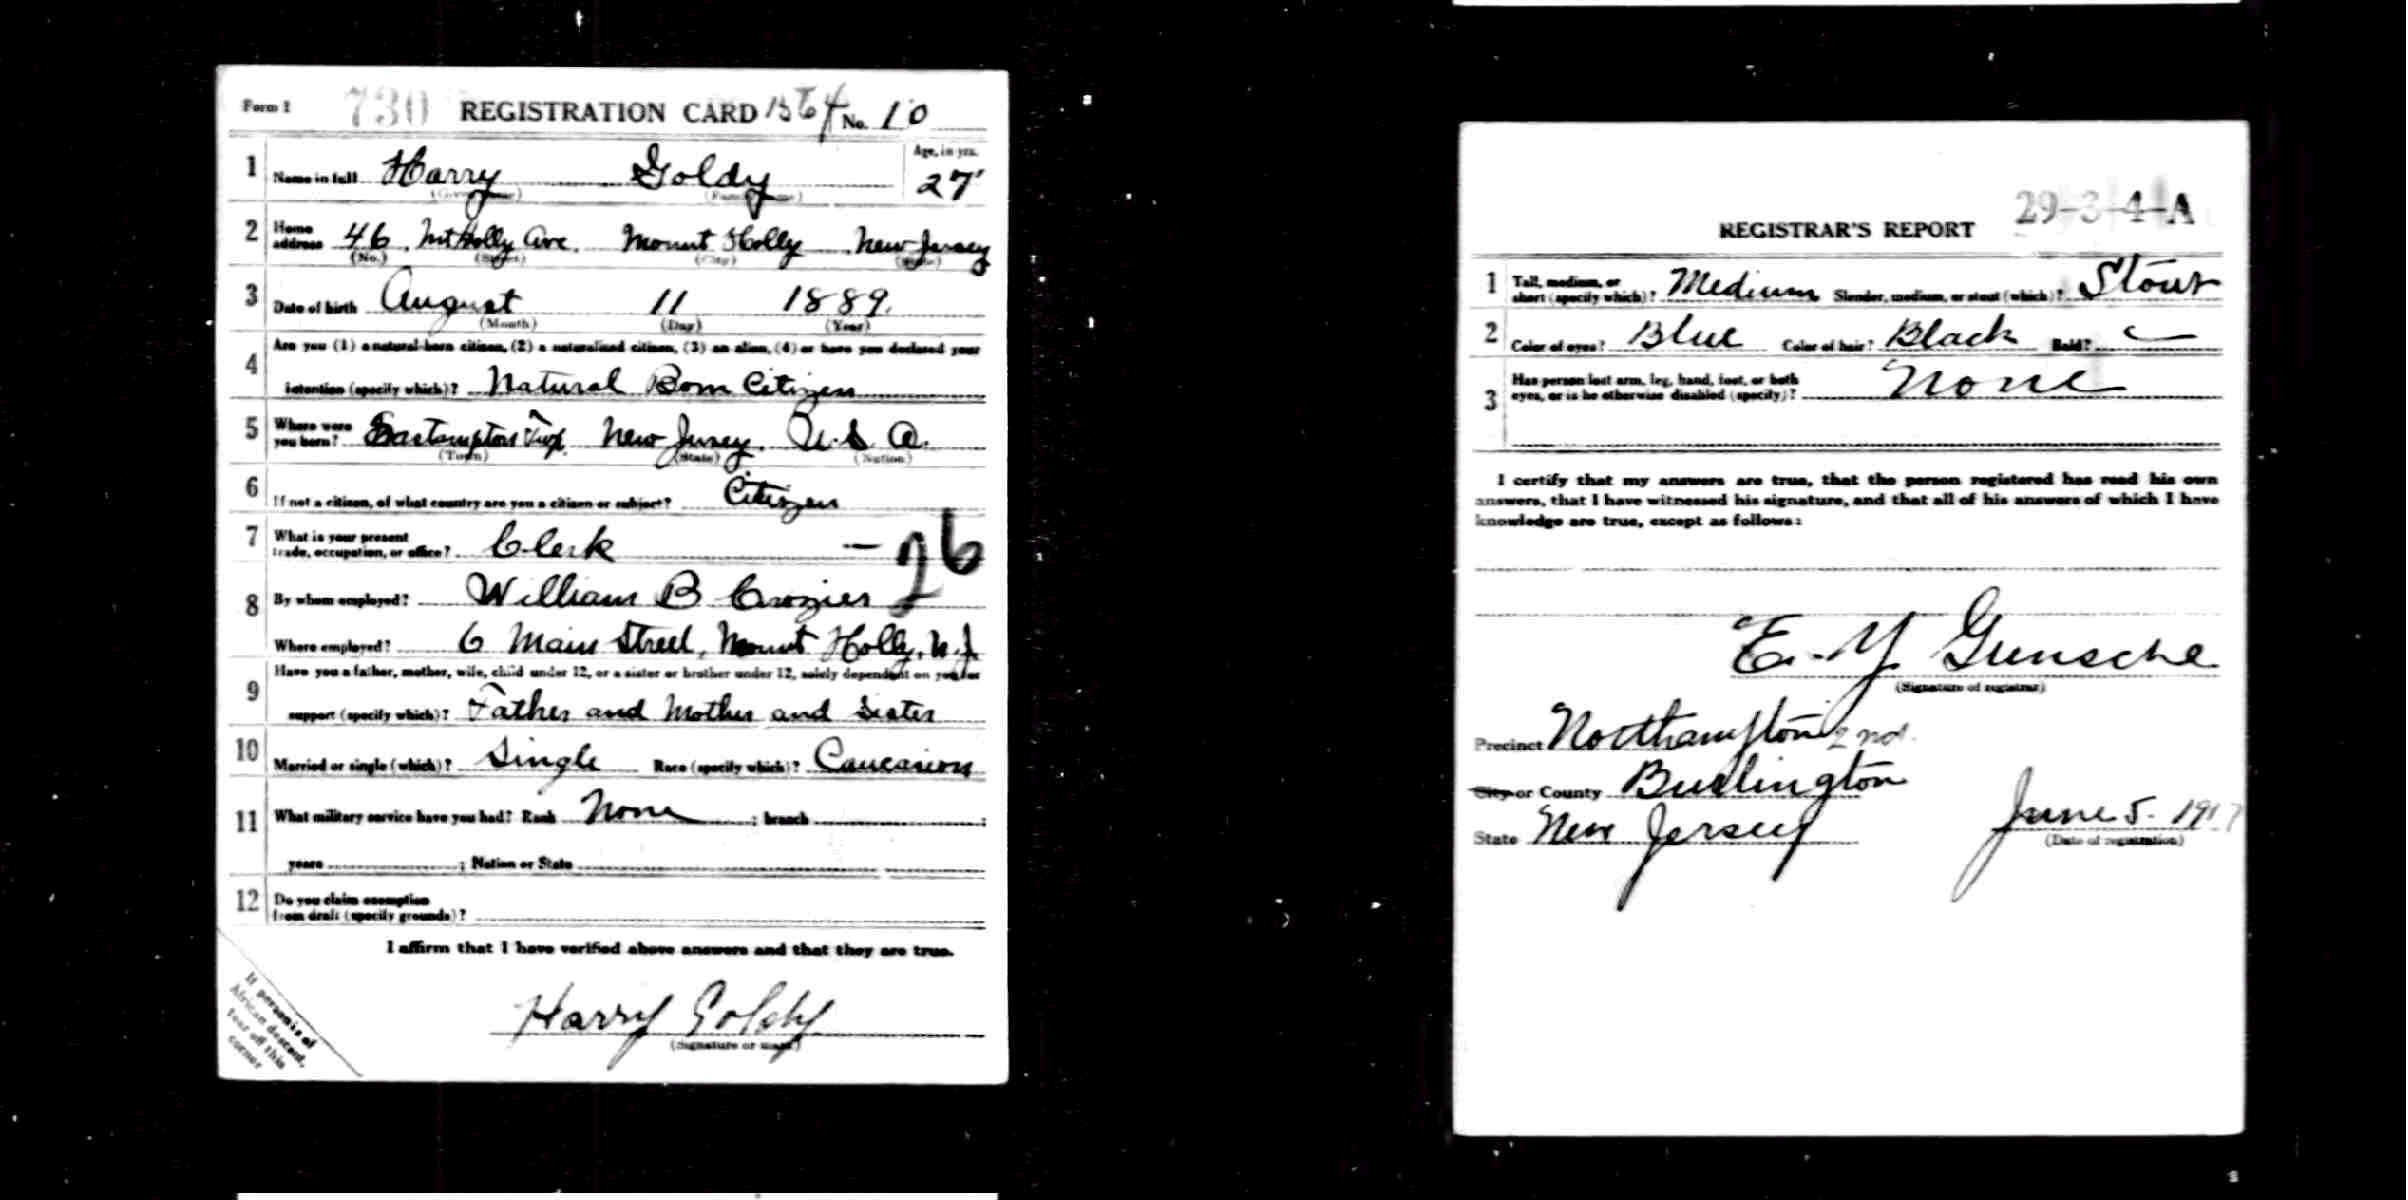 Form 1 730 REGISTRATION CARD 1564 No. 10
1 Name in full Harry Goldy Age, in yrs. 27
(Given name) (Family name)
2 Home address 46 Mt Holly Ave. Mount Holly New Jersey
(No.) (Street) (City) (State)
3 Date of birth August 11 1889.
(Month) (Day) (Year)
4 Are you (1) a natural-born citizen, (2) a naturalized citizen, (3) an alien, (4) or have you declared your
intention (specify which)? Natural Born Citizen
5 Where were you born? Eastampton Twp. New Jersey. U. S. A.
(Town) (State) (Nation)
6 If not a citizen, of what country are you a citizen or subject? Citizen
7 What is your present trade, occupation, or office? Clerk - 26
8 By whom employed? William B Crozier
Where employed? 6 Main Street, Mount Holly, N.J.
9 Have you a father, mother, wife, child under 12, or a sister or brother under 12, solely dependent on you for
support (specify which)? Father and Mother and Sister
10 Married or single (which)? Single Race (specify which)? Caucasion
11 What military service have you had? Rank None ; branch ;
years ; Nation or State
12 Do you claim exemption
from draft (specify grounds)?
I affirm that I have verified above answers and that they are true.
Harry Goldy
(Signature or mark)
If person is of
African descent,
tear off this
corner
29-3-4-A
REGISTRAR'S REPORT
1 Tall, medium, or short (specify which)? Medium Slender, medium, or stout (which)? Stout
2 Color of eyes? Blue Color of hair? Black Bald?
3 Has person lost arm, leg, hand, foot, or both
eyes, or is he otherwise disabled (specify)? None
I certify that my answers are true, that the person registered has read his own
answers, that I have witnessed his signature, and that all of his answers of which I have
knowledge are true, except as follows:
E. Y. Gunsche
(Signature of registrar)
Precinct Northampton 2nd.
City or County Burlington
State New Jersey June 5. 1917
(Date of registration)